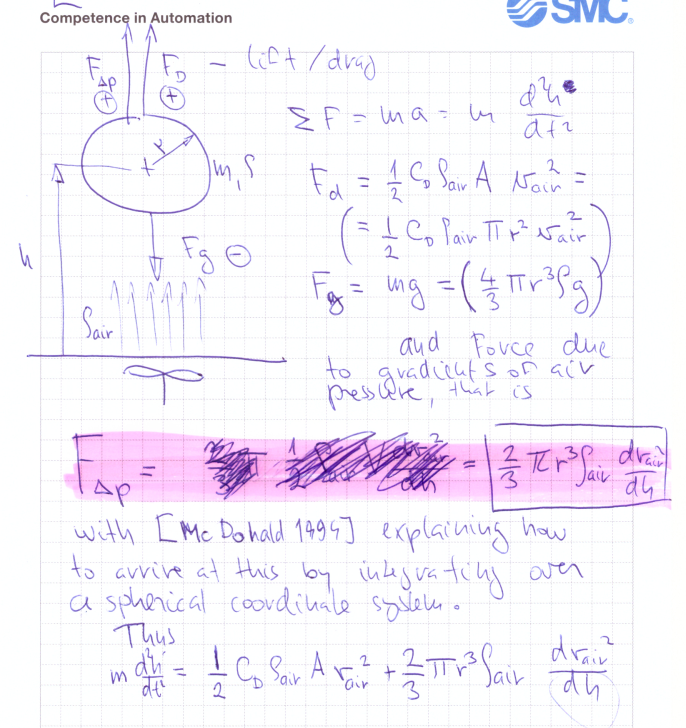 Competence in Automation
SMC
F_Δp ⊕ F_D ⊕ – lift / drag
ΣF = ma = m d²h/dt²
r
m, ρ
F_d = 1/2 C_D ρ_air A v_air² =
(= 1/2 C_D ρ_air π r² v_air²)
h
F_g ⊖
F_g = mg = (4/3 π r³ ρ g)
ρ_air
and Force due
to gradients of air
pressure, that is
F_Δp = = 2/3 π r³ ρ_air dv_air²/dh
with [McDonald 1994] explaining how
to arrive at this by integrating over
a spherical coordinate system.
Thus
m d²h/dt² = 1/2 C_D ρ_air A v_air² + 2/3 π r³ ρ_air dv_air²/dh